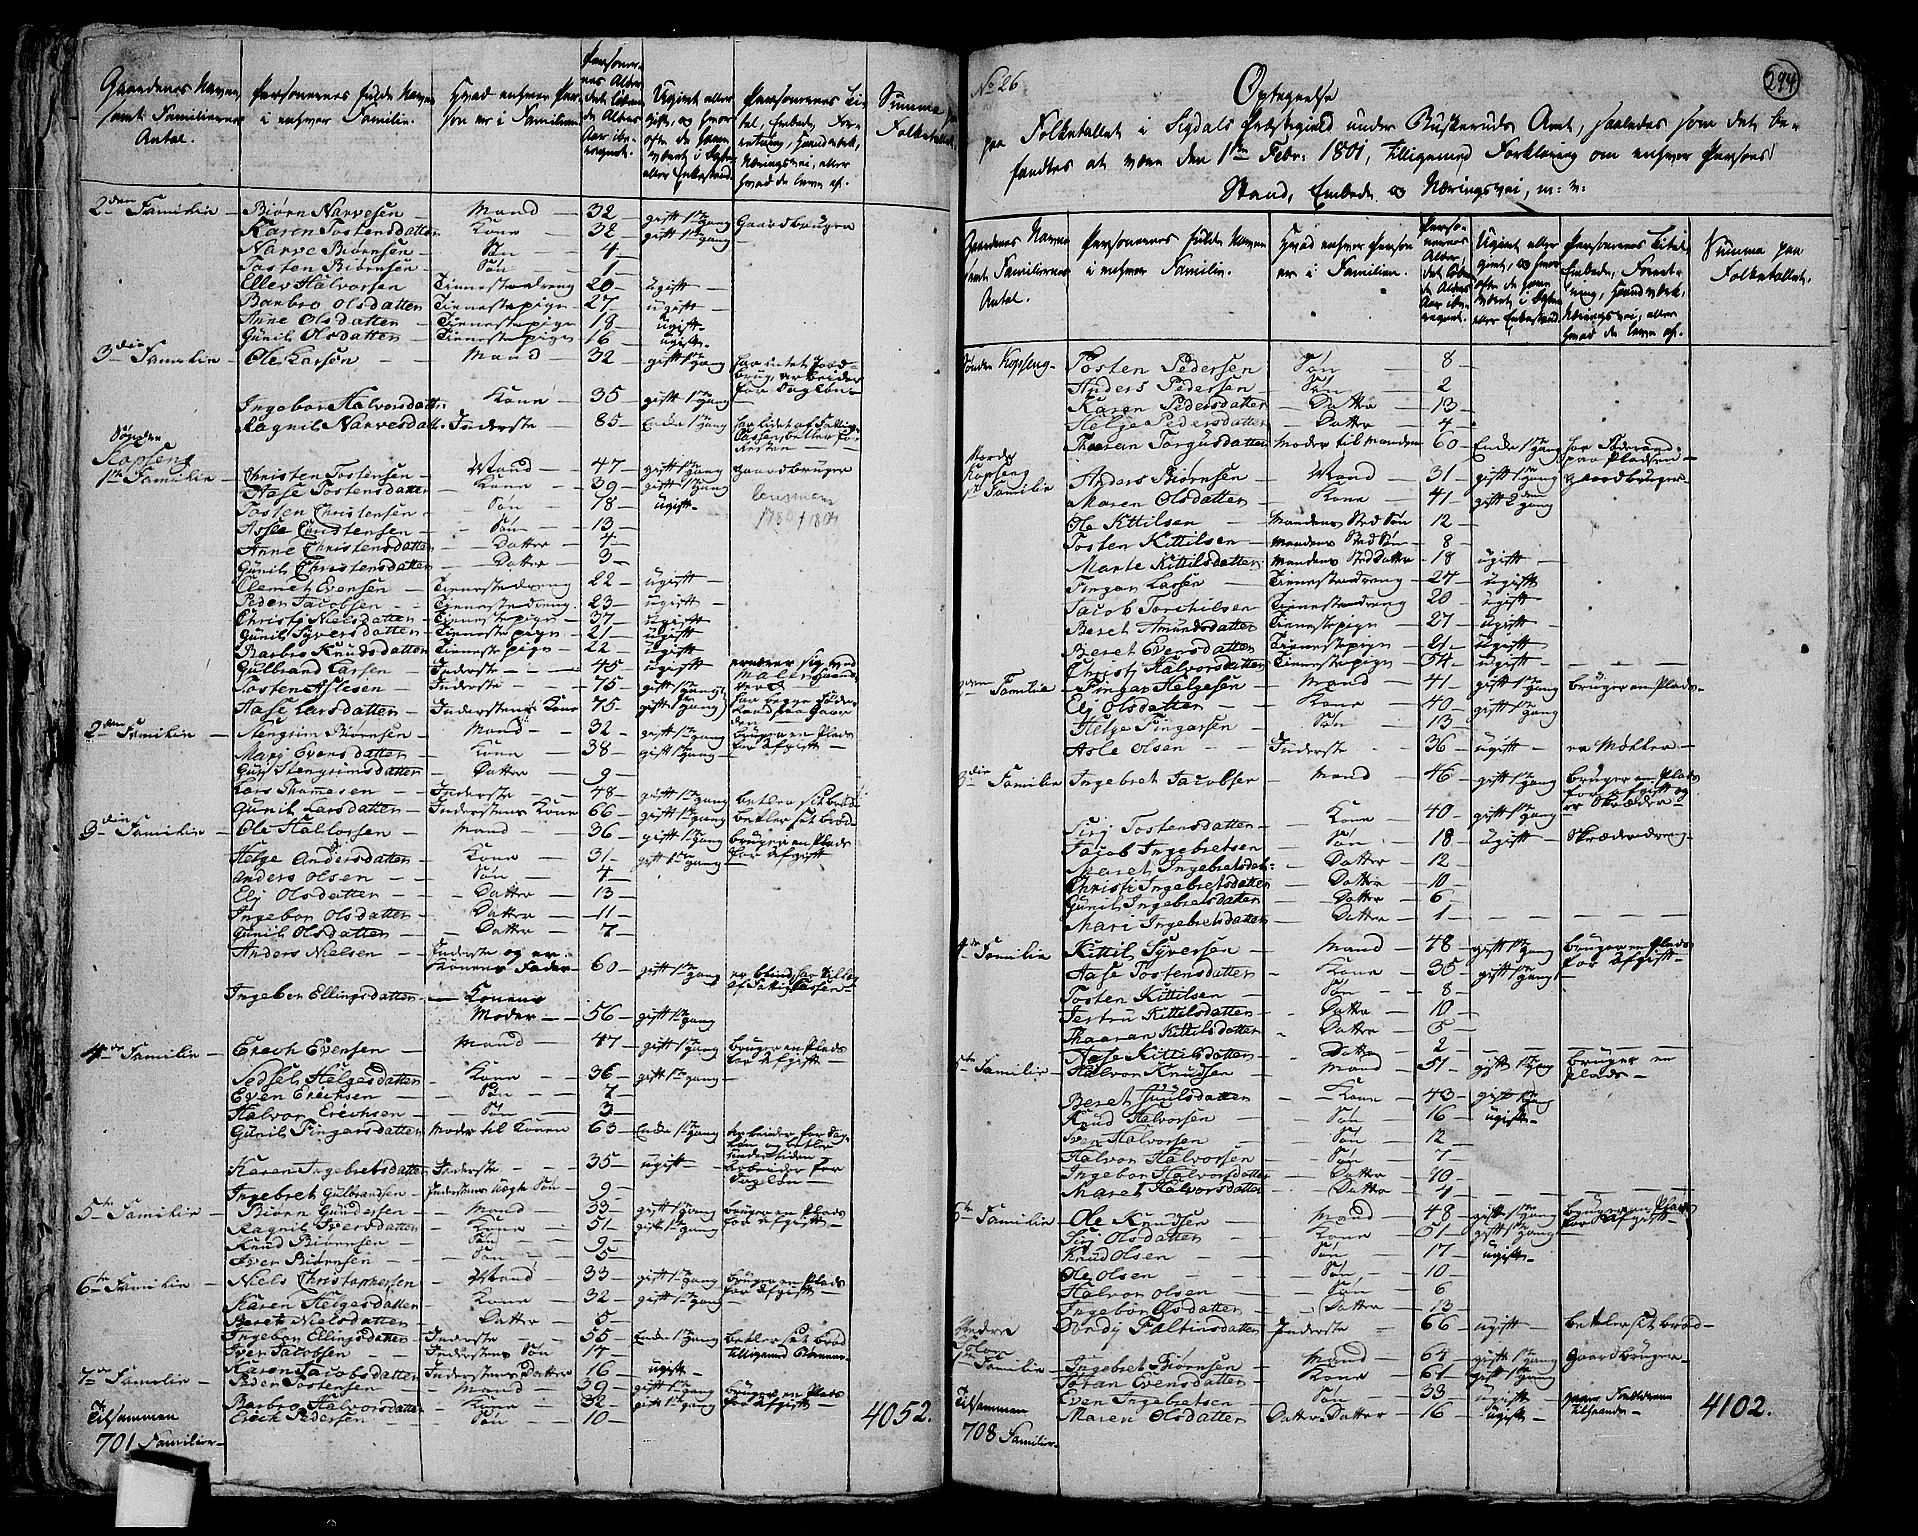 Gaardenes Navne samt Familiernes Antal. | Personernes fulde Navne i enhver Familie. | Hvad enhver Person er i Familien | Personernes Alder det løbende Alders Aar iberegnet. | Ugivt eller givt, og hvor ofte de have været i Ægte- eller Enkestand | Personernes Titel, Embede, Forretning, Haandværk, Næringsvei, eller hvad de leve af. | Summa paa Folketallet.
2den Familie — Biørn Narvesen — Mand — 32 — gift 1ste gang — Gaardbruger
Karen Tostensdatter — Kone — 32 — gift 1ste gang
Narve Biørnsen — Søn — 4 —
Tosten Biørnsen — Søn — 1 —
Ellev Halvorsen — Tienestedreng 20 — ugift
Barbro Olsdatter — Tienestepige 27 — ugift
Anne Olsdatter — Tienestepige 18 — ugift
Gunil Olsdatter — Tienestepige 16 — ugift
3die Familie — Ole Larsøn — Mand — 32 gift 1ste gang har intet Jordbrug, arbeider for Dagløn —
Ingebor Halvorsdatter — Kone — 35 — gift 1ste gang
Ragnil Narvesdatt. Inderste — 85 — Enke 1ste gang
Søndre Kopseng
1ste Familie — Christen Tostensen — Mand — 47 — gift 1ste gang gaardbruger
Aase Tostensdatter — Kone — 39 — gift 1ste gang
Tosten Christensen — Søn — 18 — ugift
Asle Christensen — Søn — 13 —
Anne Christensdatter — Datter — 4 —
Gunil Christensdatter — Datter — 3 —
Clemet Evensen — Tienestedreng 22 — ugift
Peder Jacobsen — Tienestedreng. 23 — ugift
Christj Nielsdatter — Tienestepige — 37 — ugift
Gunil Syversdatter — Tienestepige — 21 — ugift
Barbro Knudsdatter Tienestepige — 22 — ugift
Gulbrand Larsen — Inderste — 45 — ugift ernærer sig ved Maler haandverk
Tosten Aslesen — Inderste — 75 — gift 1ste gang
Aase Larsdatter — Inderstens Kone 75 gift 1ste gang
2den Familie — Stengrim Biørnsen — Mand — 32 — gift 1ste gang bruger en Plads for Afgift
Marj Evensdatter — Kone — 38 — gift 1ste gang
Gurj Stengrimsdatter — Datter — 9 —
Lars Thamesen — Inderste — 48 — gift 1ste gang betler sit brød
Gunil Larsdatter — Inderstens Kone 66 — gift 1ste gang betler sit brød
3die Familie — Ole Hallorsen — Mand — 36 — gift 1ste gang bruger en Plads for Afgift
Helge Andersdatter — Kone — 31 — gift 1ste gang
Anders Olsen — Søn — 4 —
Elj Olsdatter — Datter — 13
Ingebor Olsdatter — Datter — 11 —
Gunil Olsdatter — Datter — 7
Anders Nielsen — Inderste og er Konens Fader — 60 — gift 1ste gang
Ingebor Ellingsdatter — Konens Moder — 56 — gift 1ste gang
4de Familie — Erich Evensen — Mand — 47 — gift 1ste gang bruger en Plads for Afgift
Sidsel Helgesdatter — Kone — 36 — gift 1ste gang
Even Erichsen — Søn — 7 —
Halvor Erichsen — Søn — 3 —
Gunil Fingarsdatter Moder til Konen 63 — Enke 1ste gang
Karen Ingebretsdatter Inderste — 35 — ugift — Arbeider for Dagløn —
Ingebret Gulbrandsen — Inderstens uægte Søn — 9 —
5te Familie — Biørn Gundersen — Mand — 33 — gift 1ste gang bruger en Plads for Afgift
Ragnil Iversdatter — Kone — 51 — gift 1ste gang
Knud Biørnsen — Søn — 9 —
Iver Biørnsen — Søn — 5 —
6te Familie — Niels Christophersen — Mand — 33 — gift 1ste gang bruger en Plads for Afgift —
Karen Helgesdatter — Kone — 32 — gift 1ste gang
Beret Nielsdatter — Datter — 5 —
Ingebor Ellingsdatter — Inderste — 55 — Enke 1ste gang betler sit brød tilligemed Børnene
Iver Jacobsen — Inderstens Søn — 14 —
Karen Jacobsdatter — Inderstens Datter 16 — ugift
7de Familie — Peder Tostensen — Mand — 39 — gift 1ste gang bruger en Plads for Afgift
Barbro Halvorsdatter — Kone — 32 — gift 1ste gang
Erich Pedersen — Søn — 10 —
Tilsammen 701 Familier — 4052.
No 26
294
Optegnelse
paa Folketallet i Sigdals Præstegield under Buskeruds Amt, saaledes som det be-
fandtes at være den 1ste Febr: 1801, tilligemed Forklaring om enhver Persons
Stand, Embede og Næringsvei, m: v:
Gaardenes Navne samt Familiernes Antal. | Personernes fulde Navne i enhver Familie. | Hvad enhver Person er i Familien | Personernes Alder det løbende Alders Aar iberegnet. | Ugivt eller givt, og hvor ofte de have været i Ægte- eller Enkestand. | Personernes Titel, Embede, Forretning, Haandværk, Næringsvei, eller hvad de leve af. | Summa paa Folketallet.
Søndre Kopseng — Tosten Pedersen — Søn — 8 —
Anders Pedersen — Søn — 2
Karen Pedersdatter — Datter — 13 —
Helje Pedersdatter — Datter — 4 —
Thoran Torgusdatter Moder til Manden 60 — Enke 1ste gang
Nordre Kopseng
1ste Familie — Anders Biørnsen — Mand — 31 — gift 1ste gang gaardbruger
Maren Olsdatter — Kone — 41 — gift 2den gang
Ole Kittilsen — Mandens Sted Søn 12 —
Tosten Kittilsen — Mandens Sted Søn — 8 —
Marte Kittilsdatter — Mandens SteDDatter — 18 ugift
Fingar Larsen — Tienestedreng — 24 — ugift
Jacob Torchilsen — Tienestedreng 20 — ugift
Beret Amundsdatter — Tienestepige — 27 — ugift
Beret Evensdatter — Tienestepige — 21 — ugift
Christj Halvorsdatter — Tienestepige — 54 — ugift
2den Familie — Fingar Helgesen — Mand — 41 — gift 1ste gang bruger en Plads —
Elj Olsdatter — Kone — 40 — gift 1ste gang
Helge Fingarsen — Søn — 13 —
Asle Olsen — Inderste — 36 — ugift — er Møller —
3die Familie — Ingebret Jacobsen — Mand — 46 — gift 1ste gang bruger en Plads for Afgift og er Skræder —
Sirj Tostensdatter — Kone — 40 — gift 1ste gang
Jacob Ingebretsen — Søn — 18 — ugift — Skræderdreng
Maret Ingebretsdat: — Datter — 12 —
Christi Ingebretsdatter — Datter — 10 —
Gunil Ingebretsdatter — Datter — 6 —
Mari Ingebretsdatter — Datter — 1 —
4de Familie — Kittil Syversen — Mand — 48 — gift 1ste gang bruger en Plads for Afgift —
Aase Tostensdatter — Kone — 35 — gift 1ste gang
Tosten Kittilsen — Søn — 8 —
Jestru Kittilsdatter — Datter — 10 —
Thaaran Kittilsdatter — Datter — 5 —
Aase Kittilsdatter — Datter — 2 —
5te Familie — Halvor Knudsen — Mand — 51 — gift 1ste gang bruger en Plads —
Beret Juulsdatter — Kone — 43 — gift 1ste gang
Knud Halvorsen — Søn — 16 — ugift —
Iver Halvorsen — Søn — 12 —
Halvor Halvorsen — Søn — 7
Ingebor Halvorsdatter — Datter — 10 —
Maret Halvorsdatter — Datter — 4 —
6te Familie — Ole Knudsen — Mand — 48 — gift 1ste gang bruger en Plads for Afgift —
Sirj Olsdatter — Kone — 51 — gift 1ste gang
Knud Olsen — Søn — 17 — ugift —
Ole Olsen — Søn — 10 —
Halvor Olsen — Søn — 6
Ingebor Olsdatter — Datter — 13 —
Dordj Faltinsdatter Inderste — 66 — ugift — betler sit brød —
1ste Familie — Ingebret Biørnsen — Mand — 64 — gift 1ste gang gaardbruger —
Jøran Evensdatter — Kone — 61 — gift 1ste gang
Even Ingebretsen — Søn — 33 — ugift
Maren Olsdatter — Datter Datter — 16 — ugift
Tilsammen 708 Familier — 4102.